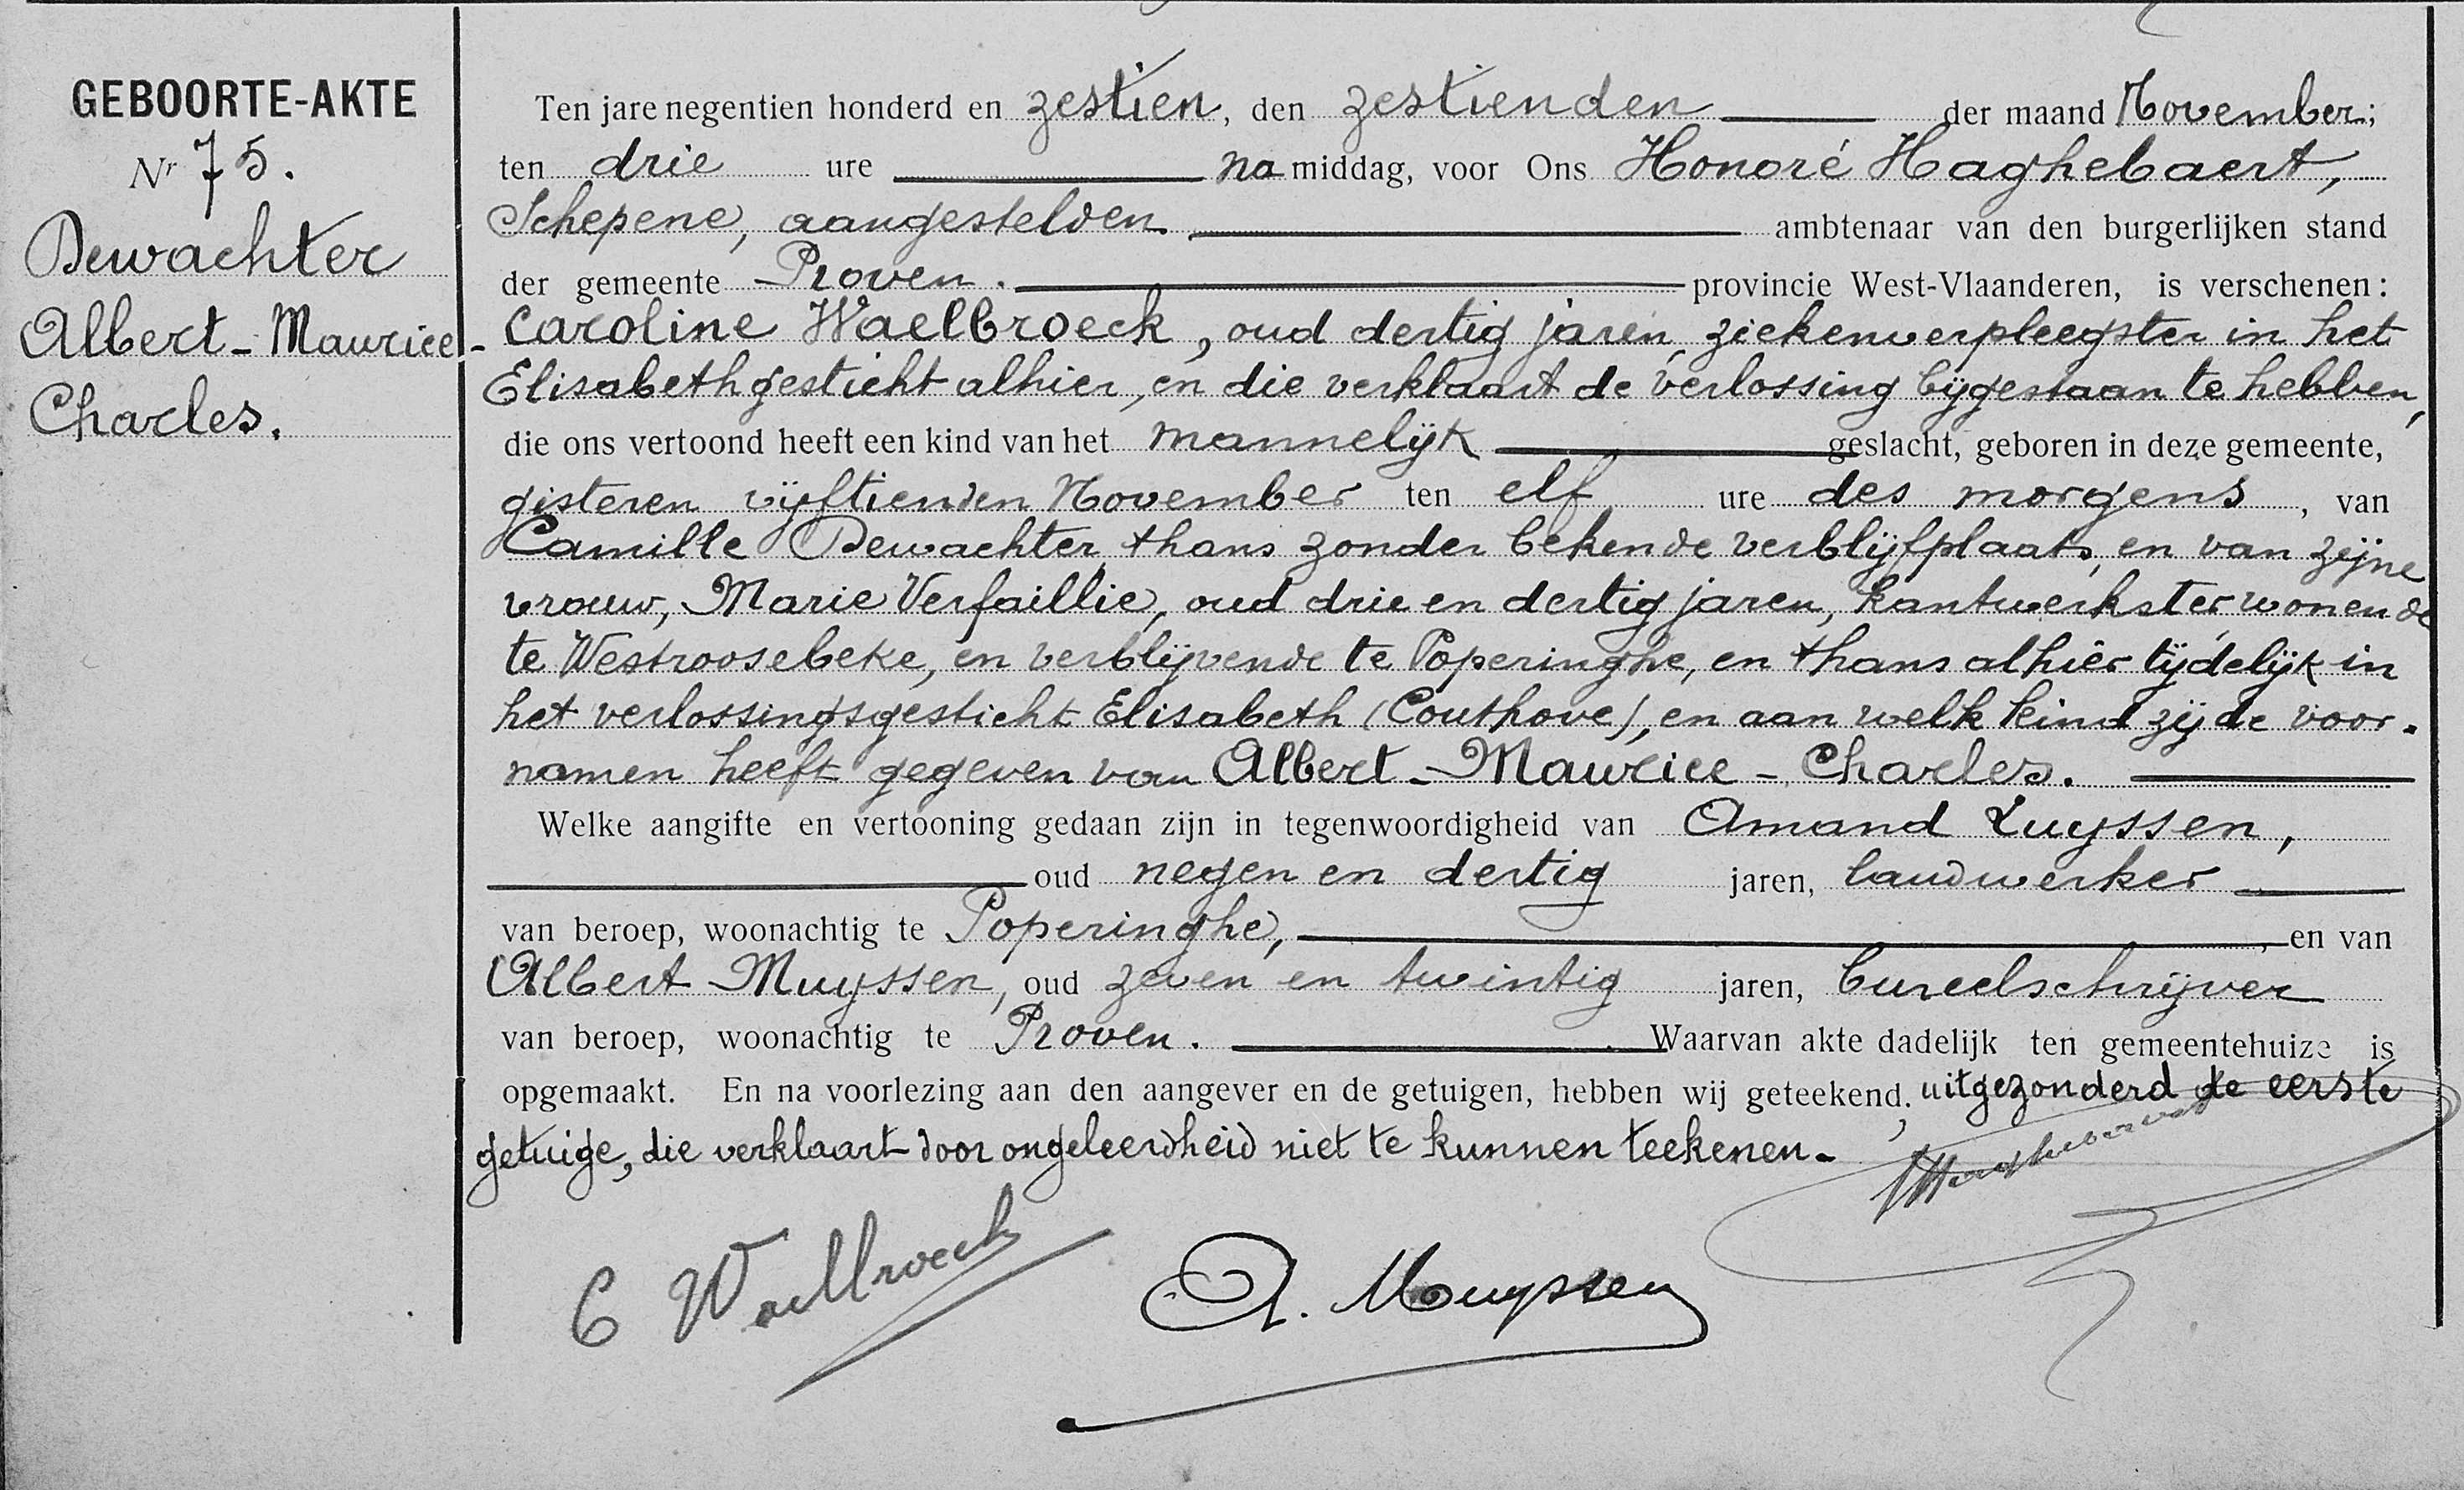 GEBOORTE-AKTE
Nr 75.
Dewachter
Albert-Maurice-
Charles.
Ten jare negentien honderd en zestien, den zestienden der maand November;
ten drie ure na middag, voor Ons Honoré Haghebaert,
Schepene, aangestelden ambtenaar van den burgerlijken stand
der gemeente Proven. provincie West-Vlaanderen, is verschenen:
Caroline Waelbroeck, oud dertig jaren, ziekenverpleegster in het
Elisabethgesticht alhier, en die verklaart de verlossing bijgestaan te hebben,
die ons vertoond heeft een kind van het mannelijk geslacht, geboren in deze gemeente,
gisteren vijftienden November ten elf ure des morgens, van
Camille Dewachter, thans zonder bekende verblijfplaats, en van zijne
vrouw, Marie Verfaillie, oud drie en dertig jaren, kantwerkster, wonende
te Westroosebeke, en verblijvende te Poperinghe, en thans alhier tijdelijk in
het verlossingsgesticht Elisabeth (Couthove), en aan welk kind zij de voor-
namen heeft gegeven van Albert-Maurice-Charles.
Welke aangifte en vertooning gedaan zijn in tegenwoordigheid van Amand Luyssen,
oud negen en dertig jaren, landwerker
van beroep, woonachtig te Poperinghe, , en van
Albert Muyssen, oud zeven en twintig jaren, bureelschrijver
van beroep, woonachtig te Proven. Waarvan akte dadelijk ten gemeentehuize is
opgemaakt. En na voorlezing aan den aangever en de getuigen, hebben wij geteekend, uitgezonderd de eerste
getuige, die verklaart door ongeleerdheid niet te kunnen teekenen.
HHaghebaert
C Waelbroeck
A. Muyssen